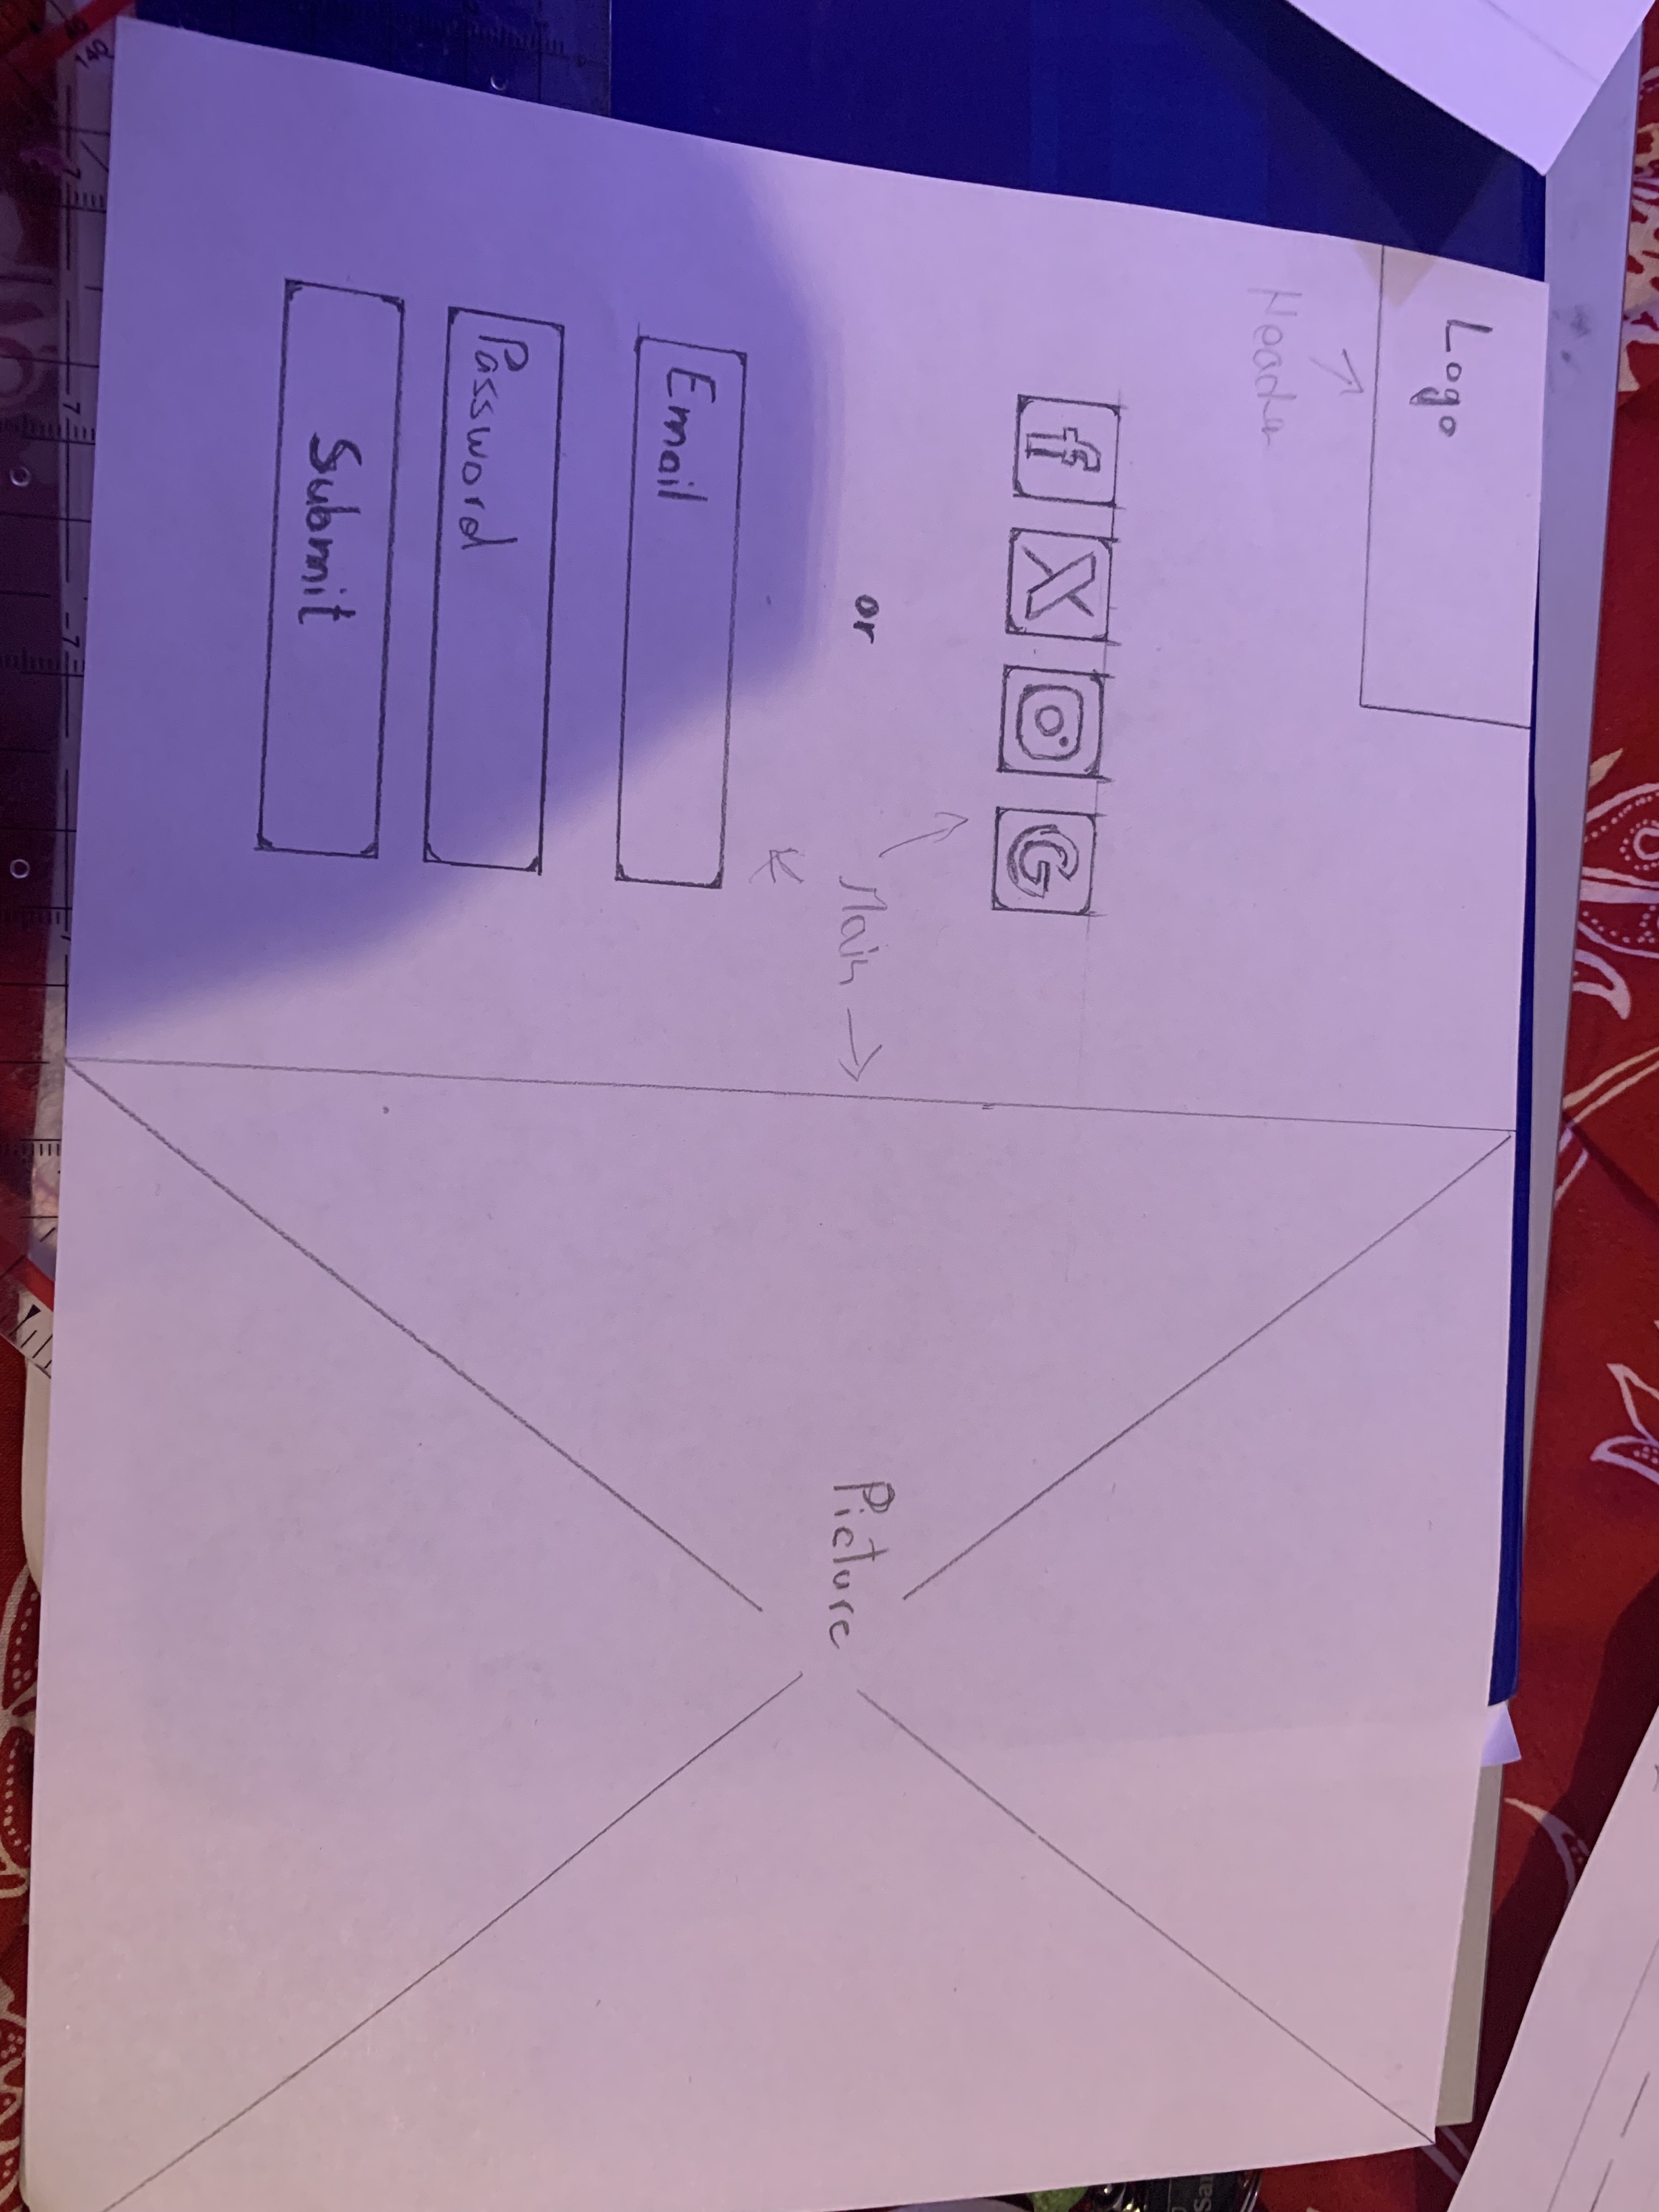 Logo
Header
f X G
or
Main
Email
Password
Submit
Picture
140